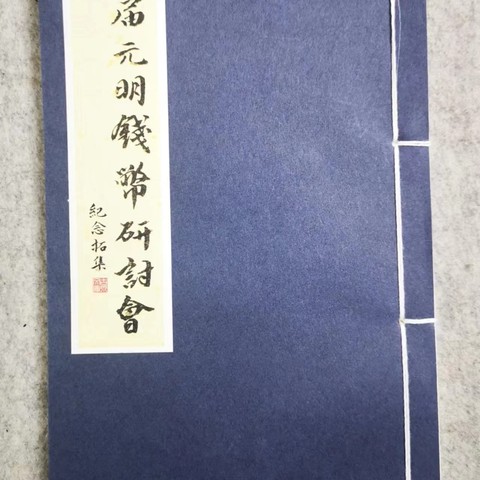 届元明錢幣研討會
紀念拓集